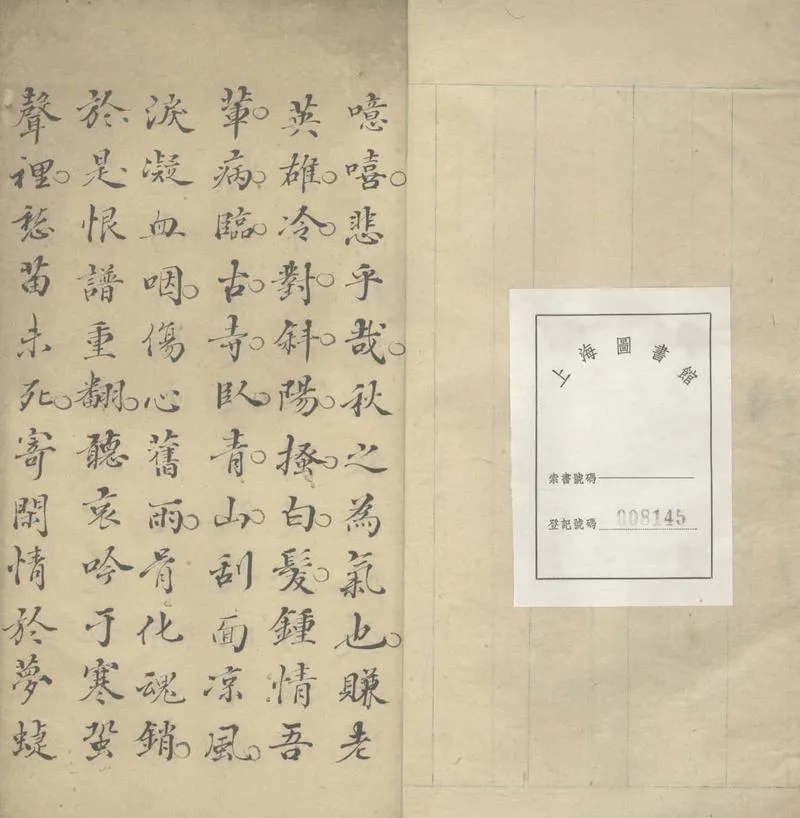 上海圖書館
索書號碼
登記號碼 008145
噫嘻悲乎哉秋之為氣也賺老
英雄冷對斜陽搔白髮鍾情吾
輩病臨古寺臥青山刮面凉風
淚凝血咽傷心舊雨骨化魂銷
於是恨譜重翻聽哀吟于寒蛩
聲裡愁苗未死寄閑情於夢蜨